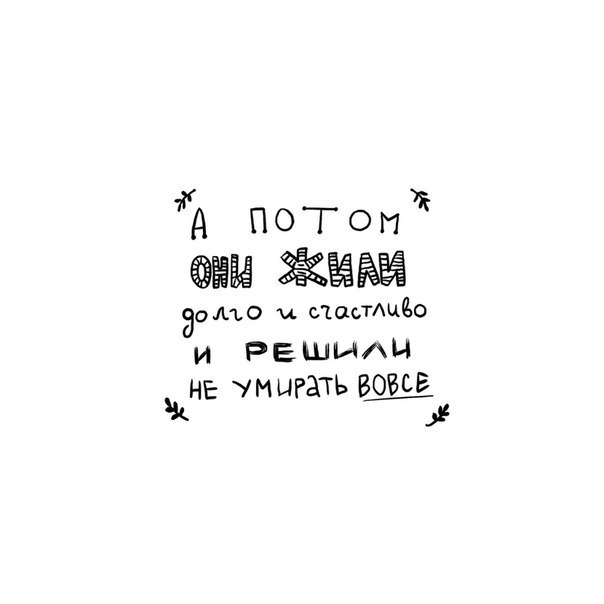 А ПОТОМ
ОНИ ЖИЛИ
долго и счастливо
И РЕШИЛИ
НЕ УМИРАТЬ ВОВСЕ